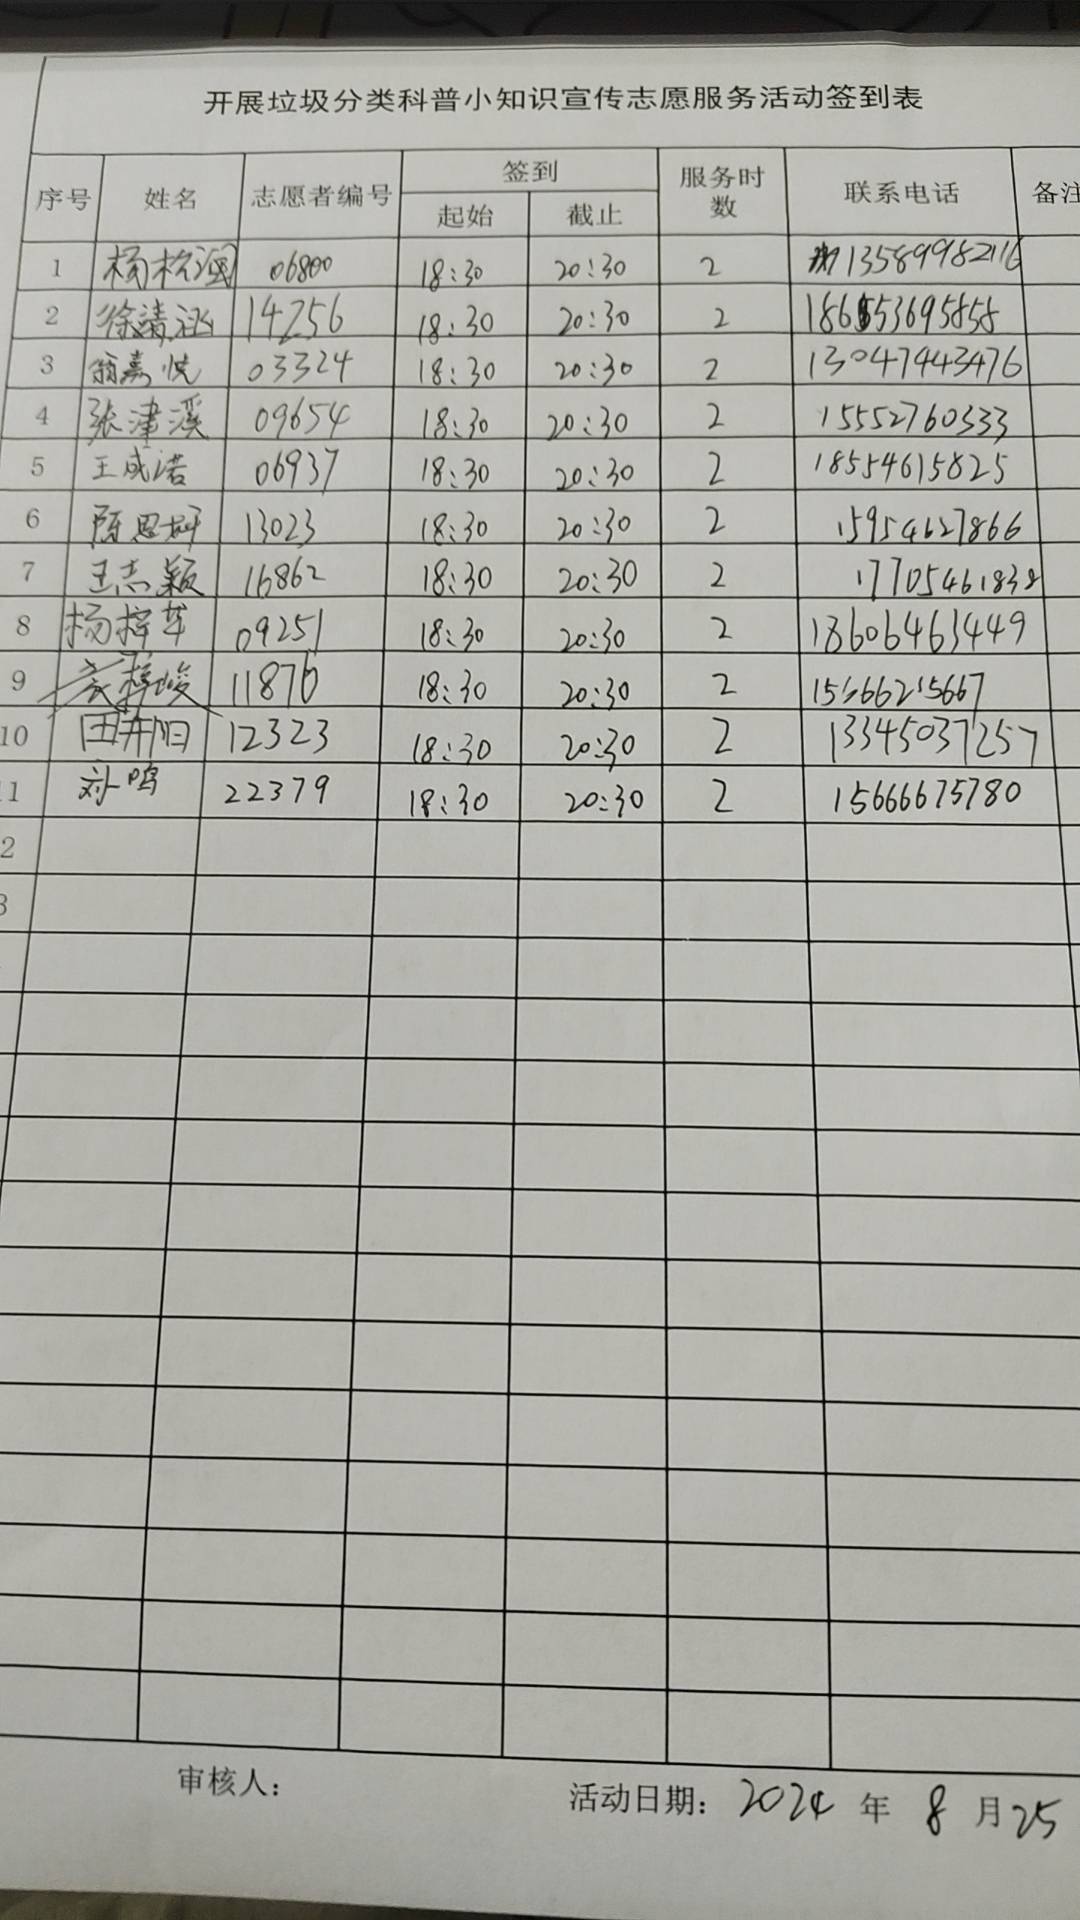 开展垃圾分类科普小知识宣传志愿服务活动签到表
序号 姓名 志愿者编号 签到 服务时数 联系电话 备注
起始 截止
1 杨 06800 18:30 20:30 2 13589982116
2 徐清涵 14256 18:30 20:30 2 18653695858
3 翁嘉悦 03324 18:30 20:30 2 13047443476
4 张津溪 09654 18:30 20:30 2 15552760333
5 王成诺 06937 18:30 20:30 2 18554615825
6 陈思妤 13023 18:30 20:30 2 15954627866
7 王志颖 16862 18:30 20:30 2 17705461838
8 杨梓苹 09251 18:30 20:30 2 18606463449
9 梓峻 11876 18:30 20:30 2 15666215667
10 田 阳 12323 18:30 20:30 2 13345037257
11 孙鸣 22379 18:30 20:30 2 15666675780
2
3
审核人： 活动日期：2024 年 8 月25